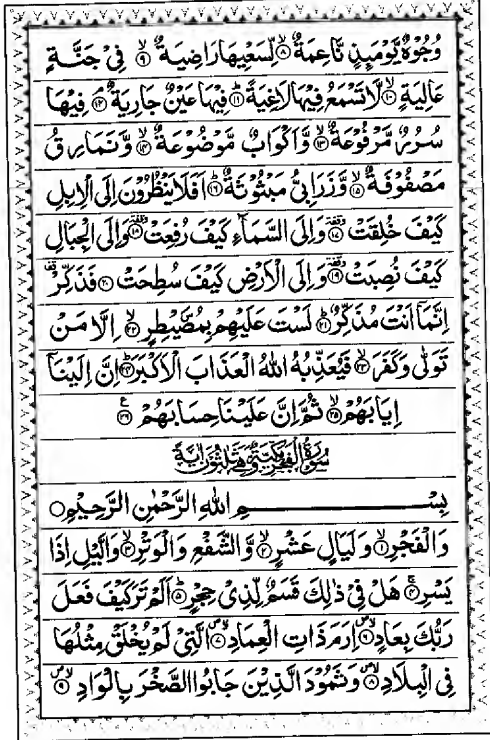 وُجُوْهٌ يَّوْمَىِٕذٍ نَّاعِمَةٌ ۙ‏﴿۸﴾ لِّسَعْيِهَا رَاضِيَةٌ ۙ‏﴿۹﴾ فِىْ جَنَّةٍ
عَالِيَةٍ ۙ‏﴿۱۰﴾ لَّا تَسْمَعُ فِيْهَا لَاغِيَةً ؕ‏﴿۱۱﴾ فِيْهَا عَيْنٌ جَارِيَةٌ ۘ‏﴿۱۲﴾ فِيْهَا
سُرُرٌ مَّرْفُوْعَةٌ ۙ‏﴿۱۳﴾ وَّاَكْوَابٌ مَّوْضُوْعَةٌ ۙ‏﴿۱۴﴾ وَّنَمَارِقُ
مَصْفُوْفَةٌ ۙ‏﴿۱۵﴾ وَّزَرَابِىُّ مَبْثُوْثَةٌ ؕ‏﴿۱۶﴾ اَفَلَا يَنْظُرُوْنَ اِلَى الْاِبِلِ
كَيْفَ خُلِقَتْ وقفة‏﴿۱۷﴾ وَاِلَى السَّمَآءِ كَيْفَ رُفِعَتْ وقفة‏﴿۱۸﴾ وَاِلَى الْجِبَالِ
كَيْفَ نُصِبَتْ وقفة‏﴿۱۹﴾ وَاِلَى الْاَرْضِ كَيْفَ سُطِحَتْ وقفة‏﴿۲۰﴾ فَذَكِّرْ
اِنَّمَاۤ اَنْتَ مُذَكِّرٌ ؕ‏﴿۲۱﴾ لَسْتَ عَلَيْهِمْ بِمُصَۜيْطِرٍ ۙ‏﴿۲۲﴾ اِلَّا مَنْ
تَوَلّٰى وَكَفَرَ ۙ‏﴿۲۳﴾ فَيُعَذِّبُهُ اللّٰهُ الْعَذَابَ الْاَكْبَرَ ؕ‏﴿۲۴﴾ اِنَّ اِلَيْنَاۤ
اِيَابَهُمْ ۙ‏﴿۲۵﴾ ثُمَّ اِنَّ عَلَيْنَا حِسَابَهُمْ ‏﴿۲۶﴾ ع
سُوْرَةُ الْفَجْرِ مَكِّيَّةٌ وَّهِىَ ثَلٰثُوْنَ اٰيَةً
بِسْمِ اللّٰهِ الرَّحْمٰنِ الرَّحِيْمِ ○
وَالْفَجْرِ ۙ‏﴿۱﴾ وَلَيَالٍ عَشْرٍ ۙ‏﴿۲﴾ وَّالشَّفْعِ وَالْوَتْرِ ۙ‏﴿۳﴾ وَالَّيْلِ اِذَا
يَسْرِ ۚ‏﴿۴﴾ هَلْ فِىْ ذٰلِكَ قَسَمٌ لِّذِىْ حِجْرٍ ؕ‏﴿۵﴾ اَلَمْ تَرَ كَيْفَ فَعَلَ
رَبُّكَ بِعَادٍ ۙ‏﴿۶﴾ اِرَمَ ذَاتِ الْعِمَادِ ۙ‏﴿۷﴾ الَّتِىْ لَمْ يُخْلَقْ مِثْلُهَا
فِى الْبِلَادِ ۙ‏﴿۸﴾ وَثَمُوْدَ الَّذِيْنَ جَابُوا الصَّخْرَ بِالْوَادِ ۙ‏﴿۹﴾